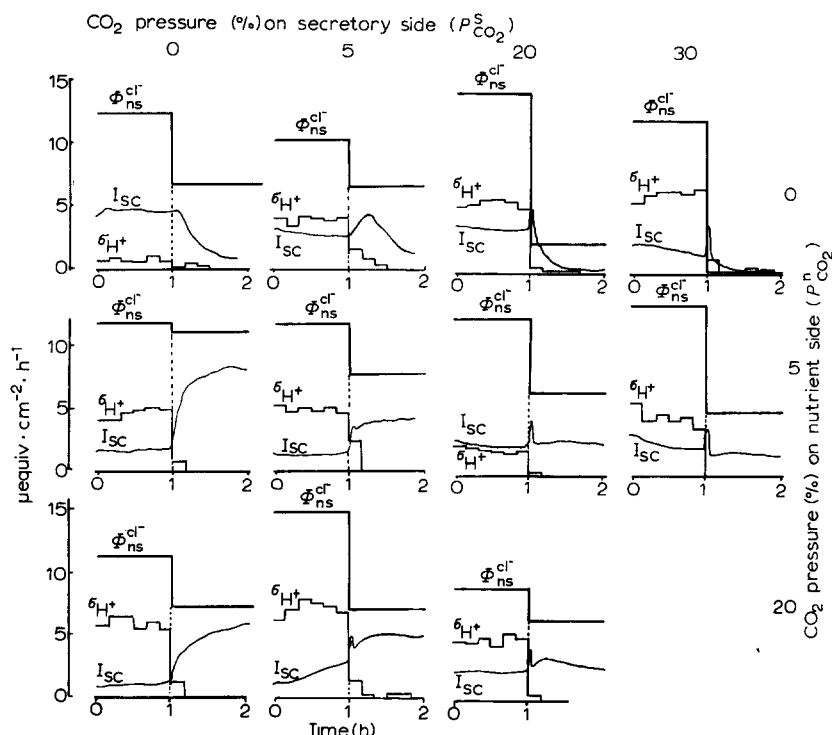 CO2 pressure (%) on secretory side (P^S_CO2)
0 5 20 30
15
10
5
0
Φ^cl-_ns
I_SC
σ_H+
0 1 2
Φ^cl-_ns
σ_H+
I_SC
0 1 2
Φ^cl-_ns
σ_H+
I_SC
0 1 2
Φ^cl-_ns
σ_H+
I_SC
0 1 2
0
10
5
0
Φ^cl-_ns
σ_H+
I_SC
0 1 2
Φ^cl-_ns
σ_H+
I_SC
0 1 2
Φ^cl-_ns
I_SC
σ_H+
0 1 2
Φ^cl-_ns
σ_H+
I_SC
0 1 2
5
10
5
0
Φ^cl-_ns
σ_H+
I_SC
0 1 2
Φ^cl-_ns
σ_H+
I_SC
0 1 2
Φ^cl-_ns
σ_H+
I_SC
0 1
20
µequiv·cm⁻²·h⁻¹
Time(h)
CO2 pressure (%) on nutrient side (P^n_CO2)